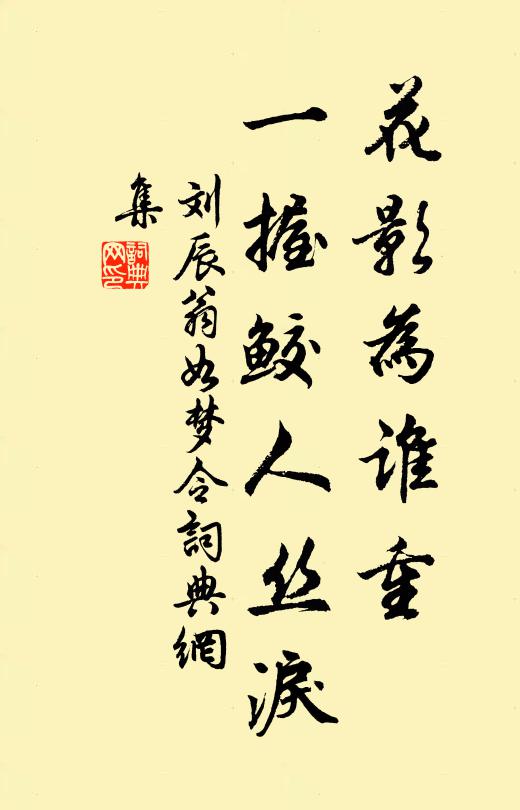 花影為誰重
一握鮫人丝淚
刘辰翁如梦令詞典網
集
詞典網印